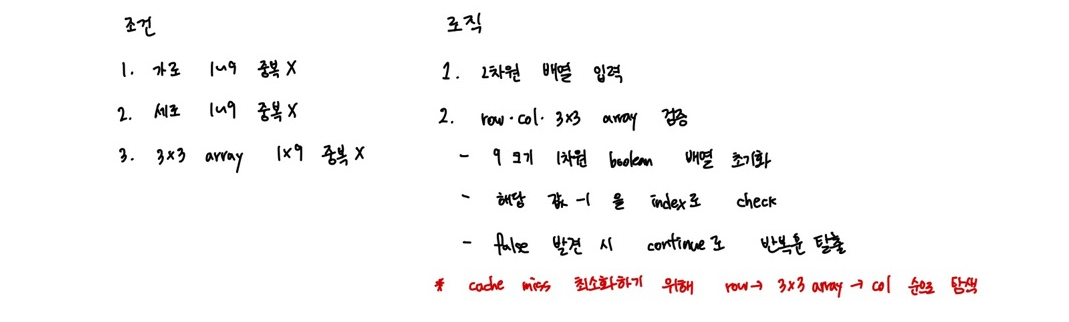 조건
1. 가로 1~9 중복 X
2. 세로 1~9 중복 X
3. 3x3 array 1x9 중복 X
로직
1. 2차원 배열 입력
2. row·col·3x3 array 검증
- 9 크기 1차원 boolean 배열 초기화
- 해당 값 -1 을 index로 check
- false 발견 시 continue로 반복문 탈출
* cache miss 최소화하기 위해 row→ 3x3 array → col 순으로 탐색